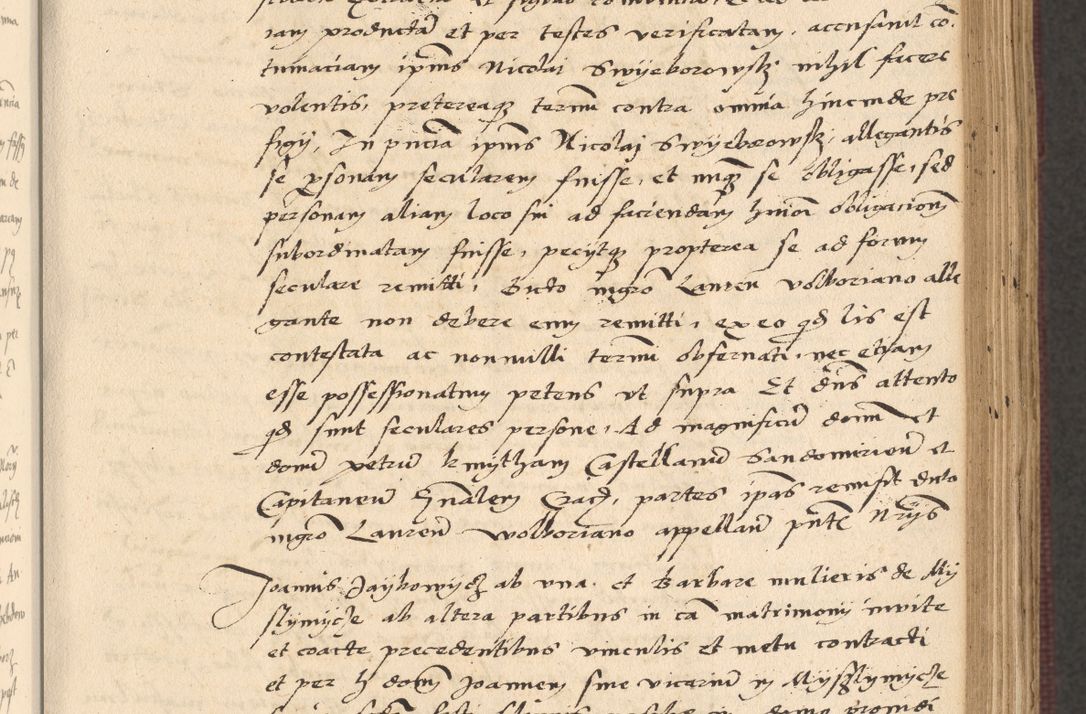 iam productam et per testes verificatam, accusavit con
tumaciam ipsius Nicolai Swyeborowsky nihil facere
volentis, pretereaque termini contra omnia hincinde pre
figy, In pncia ipius Nicolaj Swyeborowsky, allegantis
se personam secularem fuisse, et nunquam se obligasse, sed
personam aliam loco sui ad faciendam hmoi obligacionem
subordinatam fuisse, pecytque propterea se ad forum
seculare remitti, Dicto mgro Lauren Wolboriano alle
gante non debere eum remitti, ex eo quod lis est
contestata ac nonnulli termini observati, nec etiam
esse possessionatum petens ut supra Et dns attento
quod sunt seculares persone, Ad magnificum dominum et
dominum petrum kmytham Castellanum Sandomirien et
Capitaneum gnalem Crac, partes ipas remisit dicto
mgro Lauren Wolboriano appellan pnte Nrys
Joannis Jaykowycz ab una, et Barbare mulieris de My
slymycze ab altera partibus in ca matrimonij invite
et coacte precedentibus vinculis et metu contracti
et per h dom Joannem sive vicarium in Mysslymycze